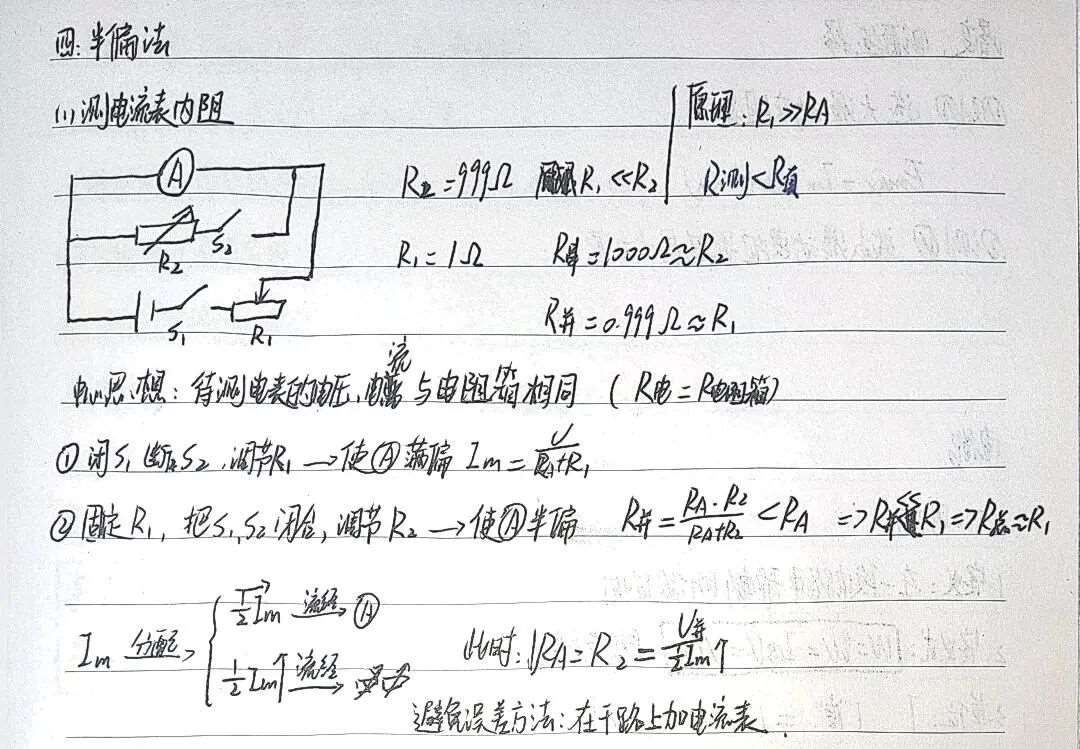 四:半偏法
(1)测电流表内阻
原理:R₁≫RA
R测<R真
R₂=999Ω R₁≪R₂
R₁=1Ω R串=1000Ω≈R₂
R并=0.999Ω≈R₁
A
R₂ S₂
S₁ R₁
中心思想:待测电表的电压,电流与电阻箱相同 (R电=R电阻箱)
①闭S₁断S₂,调节R₁→使Ⓐ满偏 Im=U/(RA+R₁)
②固定R₁,把S₁,S₂闭合,调节R₂→使Ⓐ半偏 R并=(RA·R₂)/(RA+R₂)<RA ⇒R并≪R₁⇒R总≈R₁
Im 分配→ { ½Im 流经→ Ⓐ
½Im↑ 流经→
此时:RA=R₂=U并/(½Im↑)
避免误差方法:在干路上加电流表.